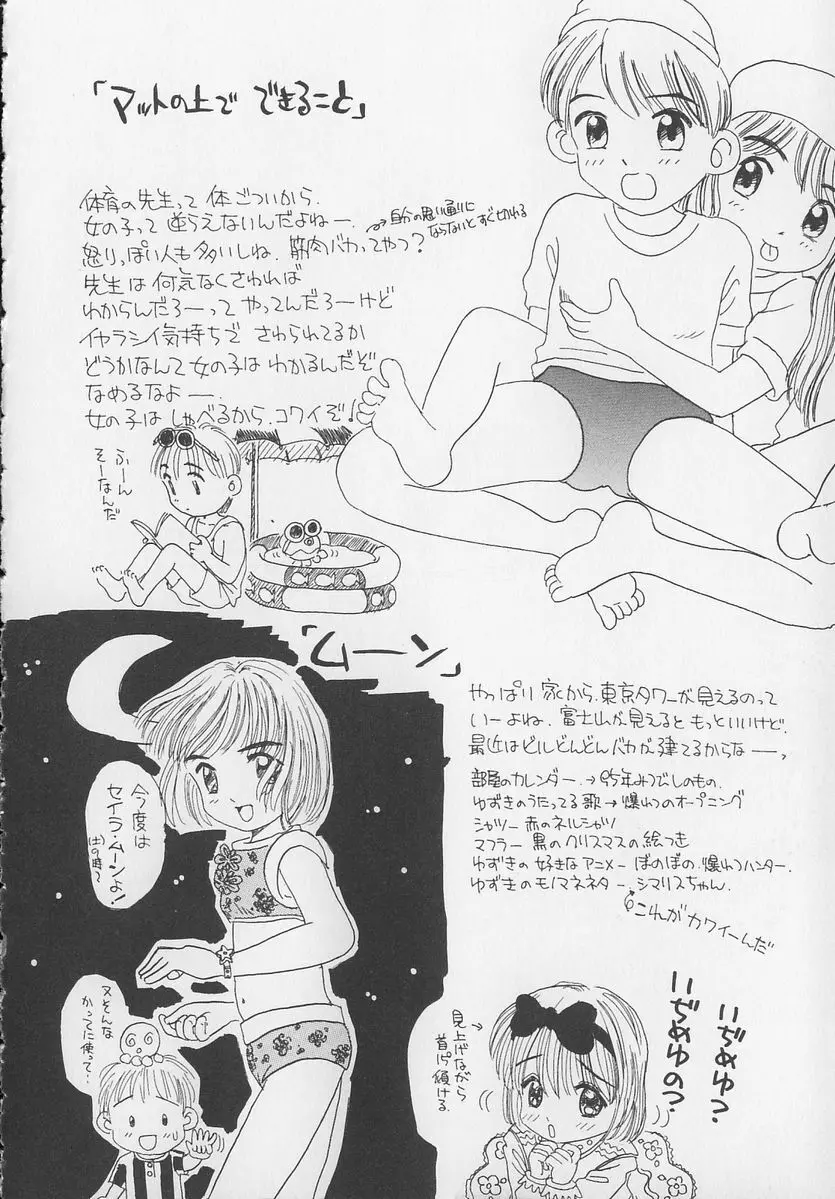 「マットの上で できること」
体育の先生って 体ごついから.
女の子って 逆らえないんだよねー.
→自分の思い通りに
ならないとすぐ切れる
怒りっぽい人も多いしね. 筋肉バカってやつ?
先生は 何気なくさわれば
わからんだろーって やってんだろーけど
イヤラシイ気持ちで さわられてるか
どうかなんて 女の子は わかるんだぞ
なめるなよー.
女の子は しゃべるから. コワイぞ!
ふーん
そーなんだ
「ムーン」
やっぱり 家から. 東京タワーが見えるのって
いーよね. 富士山が見えると もっといいけど.
最近はビルどんどんバカが 建てるからなー.
部屋のカレンダー. → 95年みつでしのもの.
ゆずきのうたってる歌 → 爆れつのオープニング
シャツー 赤のネルシャツ
マフラー 黒のクリスマスの絵つき
ゆずきの 好きな アニメー ぼのぼの. 爆れつハンター.
ゆずきのモノマネネター. シマリスちゃん.
これが カワイーんだ
今度は
セイラ・ムーンよ!
又そんな
かってに使って‥
見上げながら
首は傾ける.
いぢめゆ?
いぢめゆの?